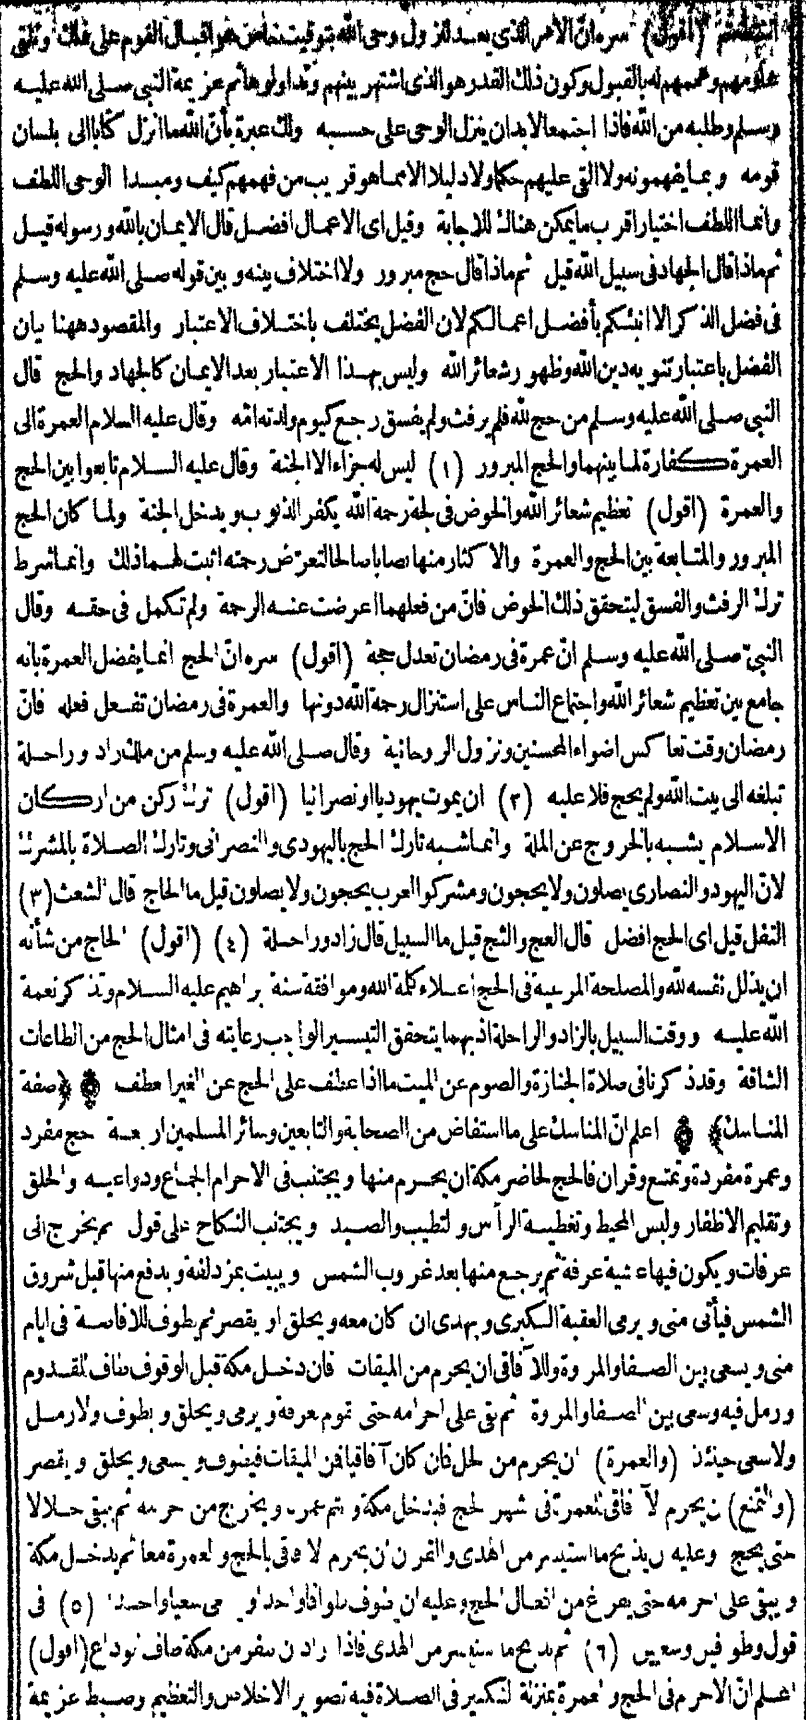 (اقول) سره ان الامر الذى يعد لنزول وحى الله بتوقيت خاص هو اقبال القوم على ذلك وتلقى
علومهم وهممهم له بالقبول وكون ذلك القدر هو الذى اشتهر بينهم وتداولوها ثم عزيمة النبى صلى الله عليه
وسلم وطلبه من الله فاذا اجتمعا لابد ان ينزل الوحى على حسبه ولك عبرة بأن الله ما انزل كتابا الى بلسان
قومه وبما يفهمونه ولا القى عليهم حكما ولا دليلا الا مما هو قريب من فهمهم كيف ومبدا الوحى اللطف
وانما اللطف اختيار اقرب ما يمكن هنالك للاجابة وقيل اى الاعمال افضل قال الايمان بالله ورسوله قيل
ثم ماذا قال الجهاد فى سبيل الله قيل ثم ماذا قال حج مبرور ولا اختلاف بينه وبين قوله صلى الله عليه وسلم
فى فضل الذكر الا انبئكم بأفضل اعمالكم لان الفضل يختلف باختلاف الاعتبار والمقصود ههنا بيان
الفضل باعتبار تنويه دين الله وظهور شعائر الله وليس بهذا الاعتبار بعد الايمان كالجهاد والحج قال
النبى صلى الله عليه وسلم من حج لله فلم يرفث ولم يفسق رجع كيوم ولدته امه وقال عليه السلام العمرة الى
العمرة كفارة لما بينهما والحج المبرور (١) ليس له جزاء الا الجنة وقال عليه السلام تابعوا بين الحج
والعمرة (اقول) تعظيم شعائر الله والخوض فى لجة رحمة الله يكفر الذنوب ويدخل الجنة ولما كان الحج
المبرور والمتابعة بين الحج والعمرة والاكثار منها نصابا صالحا لتعرض رحمته اثبت لهما ذلك وانما شرط
ترك الرفث والفسق ليتحقق ذلك الخوض فان من فعلهما اعرضت عنه الرحمة ولم تكمل فى حقه وقال
النبى صلى الله عليه وسلم ان عمرة فى رمضان تعدل حجة (اقول) سره ان الحج انما يفضل العمرة بانه
جامع بين تعظيم شعائر الله واجتماع الناس على استنزال رحمة الله دونها والعمرة فى رمضان تفعل فعله فان
رمضان وقت تعاكس اضواء المحسنين ونزول الروحانية وقال صلى الله عليه وسلم من ملك زاد وراحلة
تبلغه الى بيت الله ولم يحج فلا عليه (٢) ان يموت يهوديا او نصرانيا (اقول) ترك ركن من اركان
الاسلام يشبه بالخروج عن الملة وانما شبه تارك الحج باليهودى والنصرانى وتارك الصلاة بالمشرك
لان اليهود والنصارى يصلون ولا يحجون ومشركو العرب يحجون ولا يصلون قيل ما الحاج قال الشعث (٣)
التفل قيل اى الحج افضل قال العج والثج قيل ما السبيل قال زاد وراحلة (٤) (اقول) الحاج من شأنه
ان يذلل نفسه لله والمصلحة المرعية فى الحج اعلاء كلمة الله وموافقة سنة ابراهيم عليه السلام وتذكر نعمة
الله عليه ووقت السبيل بالزاد والراحلة اذ بهما يتحقق التيسير الواجب رعايته فى امثال الحج من الطاعات
الشاقة وقد ذكرنا فى صلاة الجنازة والصوم عن الميت ما اذا عطف على الحج عن الغير انعطف ﴿صفة
المناسك﴾ اعلم ان المناسك على ما استفاض من الصحابة والتابعين وسائر المسلمين اربعة حج مفرد
وعمرة مفردة وتمتع وقران فالحج لحاضر مكة ان يحرم منها ويجتنب فى الاحرام الجماع ودواعيه والحلق
وتقليم الاظفار ولبس المحيط وتغطية الرأس والتطيب والصيد ويجتنب النكاح على قول ثم يخرج الى
عرفات ويكون فيها عشية عرفة ثم يرجع منها بعد غروب الشمس ويبيت بمزدلفة ويدفع منها قبل شروق
الشمس فيأتى منى ويرمى العقبة الكبرى ويهدى ان كان معه ويحلق او يقصر ثم يطوف للافاضة فى ايام
منى ويسعى بين الصفا والمروة وللآفاقى ان يحرم من الميقات فان دخل مكة قبل الوقوف طاف للقدوم
ورمل فيه وسعى بين الصفا والمروة ثم بقى على احرامه حتى يقوم بعرفة ويرمى ويحلق ويطوف ولا رمل
ولا سعى حينئذ (والعمرة) ان يحرم من الحل فان كان آفاقيا فمن الميقات فيطوف ويسعى ويحلق او يقصر
(والتمتع) ان يحرم الآفاقى للعمرة فى اشهر الحج فيدخل مكة ويتم عمرته ويخرج من احرامه ثم يبقى حلالا
حتى يحج وعليه ان يذبح ما استيسر من الهدى والقران ان يحرم الآفاقى بالحج والعمرة معا ثم يدخل مكة
ويبقى على احرامه حتى يفرغ من افعال الحج وعليه ان يطوف طوافا واحدا ويسعى سعيا واحدا (٥) فى
قول وطوافين وسعيين (٦) ثم يذبح ما استيسر من الهدى فاذا اراد ان ينفر من مكة طاف للوداع (اقول)
اعلم ان الاحرام فى الحج والعمرة بمنزلة التكبير فى الصلاة فيه تصوير الاخلاص والتعظيم وضبط عزيمة